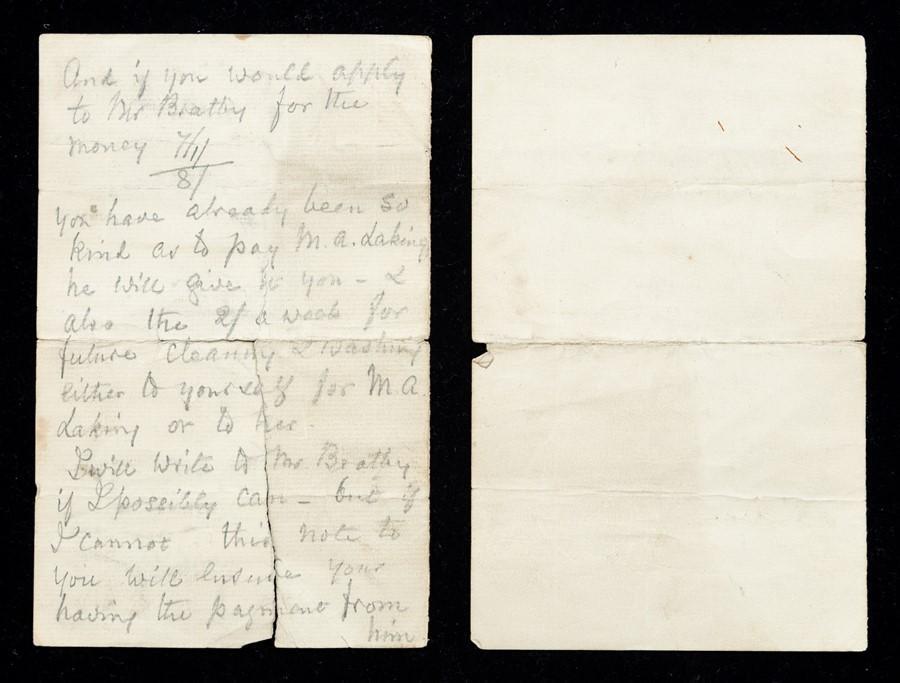 And if you would apply
to Mr Bratby for the
money 7/11
8/
you have already been so
kind as to pay M. A. Laking
he will give it you - &
also the 2/ a week for
future cleaning & washing
either to yourself for M A.
Laking or to her.
I will write to Mr Bratby
if I possibly can - but if
I cannot this note to
you will ensure your
having the payment from
him